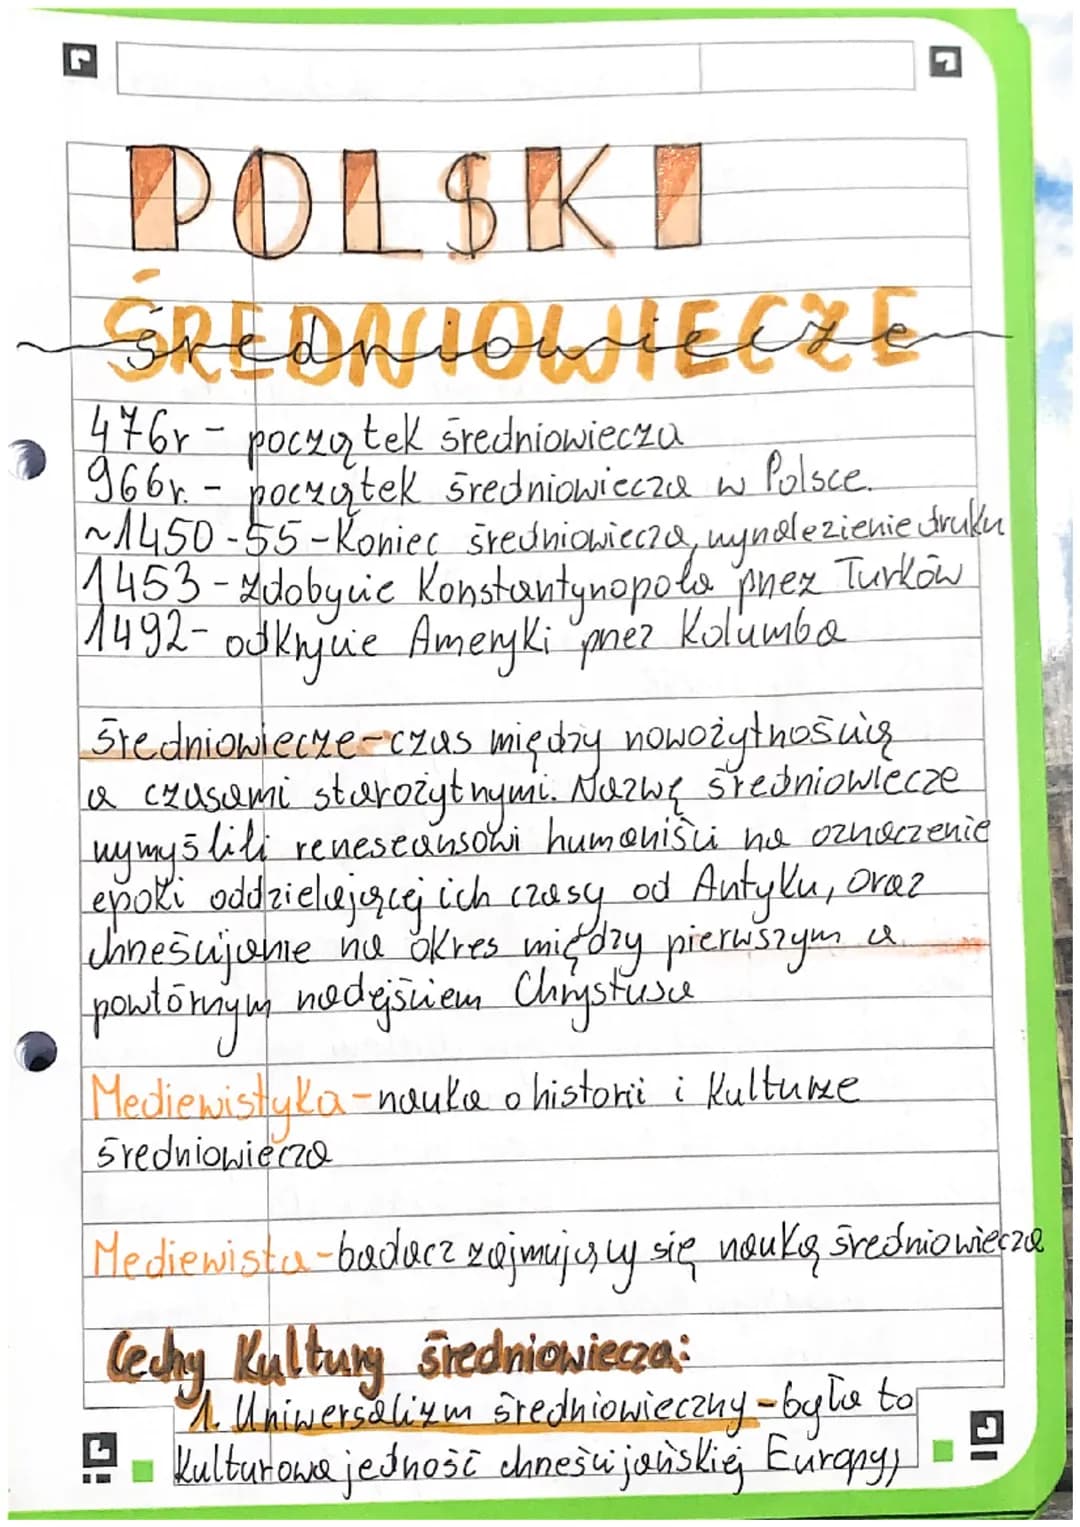 POLSKI
ŚREDNIOWIECZE
średniowiecze
476r - początek średniowiecza
966r. - początek średniowiecza w Polsce.
~1450-55 - Koniec średniowiecza, wynalezienie druku
1453 - zdobycie Konstantynopola przez Turków
1492 - odkrycie Ameryki przez Kolumba
Średniowiecze - czas między nowożytnością
a czasami starożytnymi. Nazwę średniowiecze
wymyślili reneseansowi humaniści na oznaczenie
epoki oddzielającej ich czasy od Antyku, oraz
chrześcijanie na okres między pierwszym a
powtórnym nadejściem Chrystusa
Mediewistyka - nauka o historii i kulturze
średniowiecza
Mediewista - badacz zajmujący się nauką średniowiecza
Cechy Kultury średniowiecza:
1. Uniwersalizm średniowieczny - była to
kulturowa jedność chrześcijańskiej Europy,